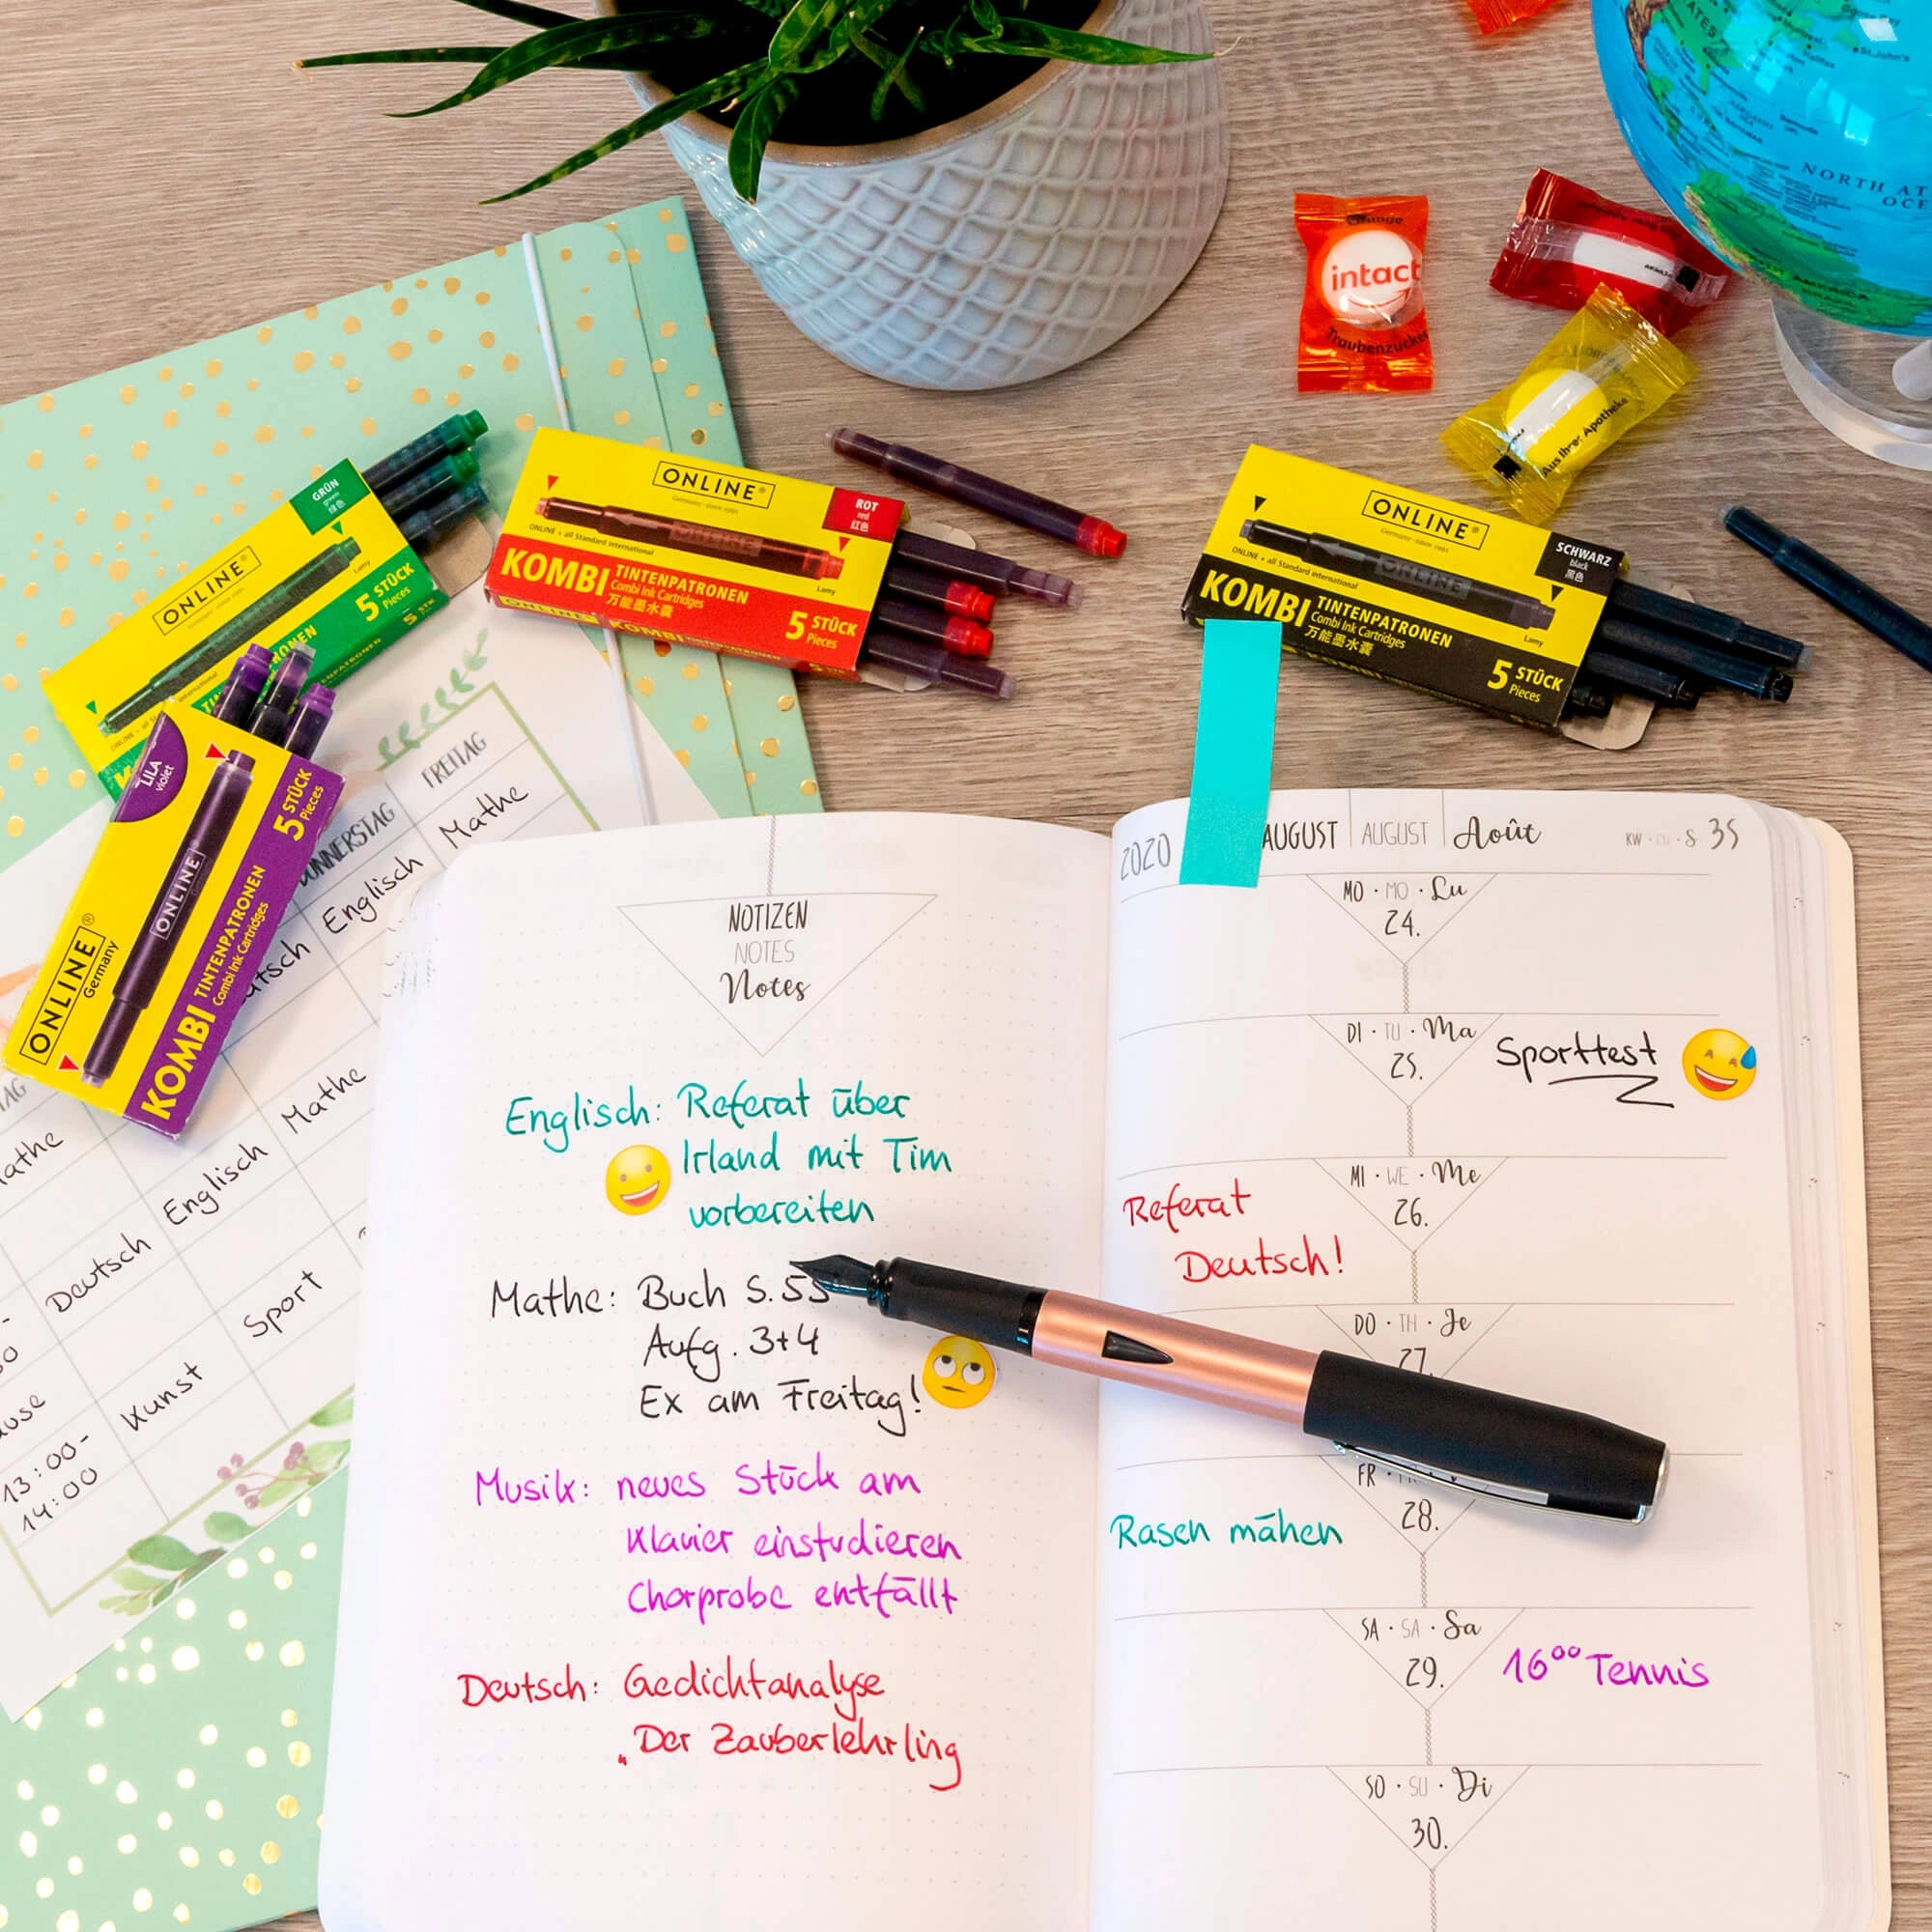 ATES
Halifax
St.John's
Bermuda
NORTH AT
OCE
Orange
intact
Traubenzucker
Aus Ihrer Apotheke
ONLINE®
GRÜN
green
绿色
ONLINE + all Standard international
Lamy
5 STÜCK
Pieces
ONLINE®
Germany · since 1991
ROT
red
红色
ONLINE + all Standard international
Lamy
KOMBI TINTENPATRONEN
Combi Ink Cartridges
万能墨水囊
5 STÜCK
Pieces
ONLINE®
Germany · since 1991
SCHWARZ
black
黑色
ONLINE
ONLINE + all Standard international
Lamy
KOMBI TINTENPATRONEN
Combi Ink Cartridges
万能墨水囊
5 STÜCK
Pieces
LILA
violet
ONLINE
ONLINE®
Germany
KOMBI TINTENPATRONEN
Combi Ink Cartridges
5 STÜCK
Pieces
FREITAG
Mathe
Englisch
Mathe
Englisch
Deutsch
Sport
Kunst
13:00-
14:00
NOTIZEN
NOTES
Notes
Englisch: Referat über
Irland mit Tim
vorbereiten
Mathe: Buch S. 55
Aufg. 3+4
Ex am Freitag!
Musik: neues Stück am
Klavier einstudieren
Chorprobe entfällt
Deutsch: Gedichtanalyse
„Der Zauberlehrling
2020
AUGUST | AUGUST | Août
KW · CW · S 35
MO · MO · Lu
24.
DI · TU · Ma
25.
Sporttest
MI · WE · Me
26.
Referat
Deutsch!
DO · TH · Je
27.
FR
28.
Rasen mähen
SA · SA · Sa
29.
16⁰⁰ Tennis
SO · SU · Di
30.